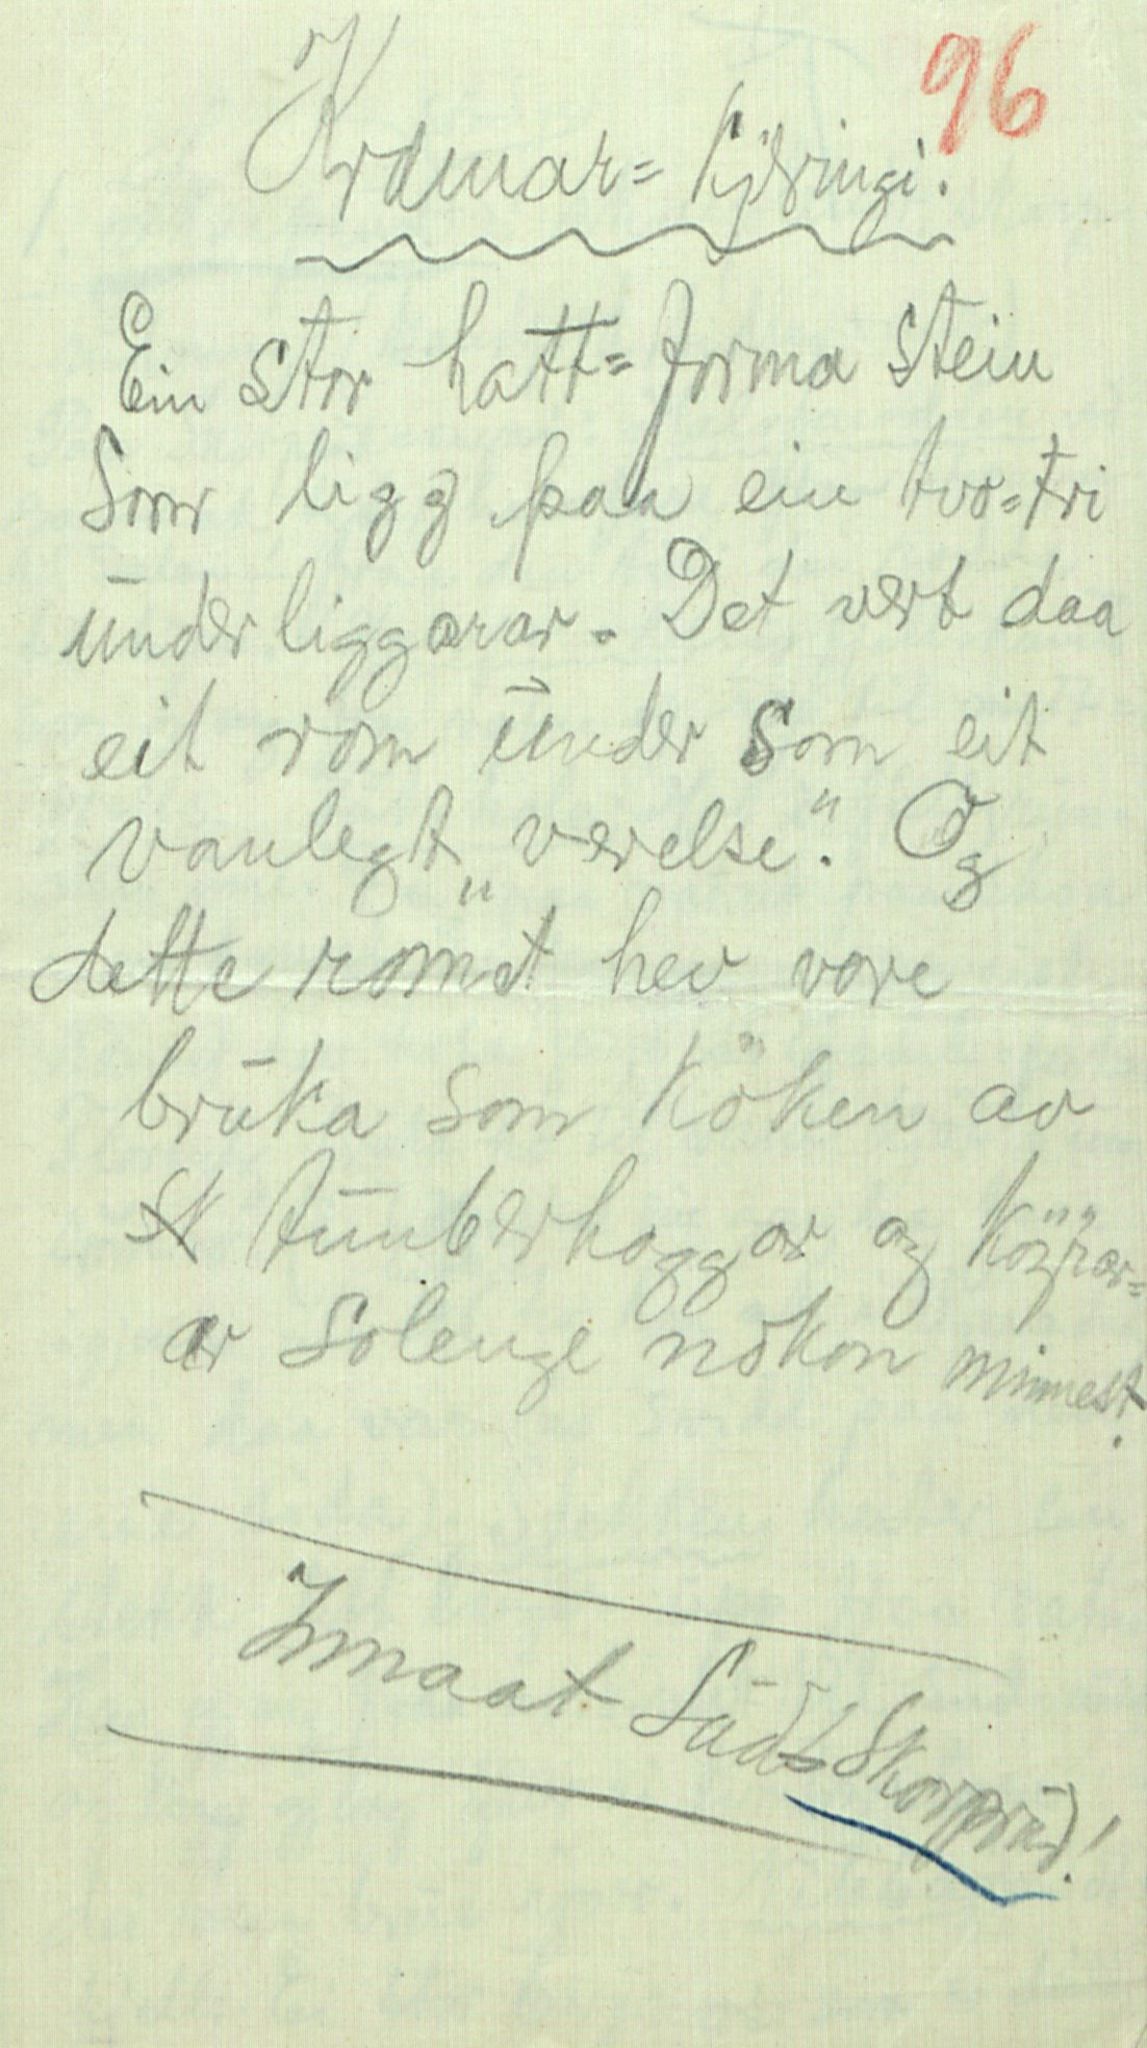 96
Kramar= Kjæringi.
Ein stor hatt=forma stein
som ligg paa ein tvo=tri
ūnderliggarar. Det vert daa
eit rom ūnder som eit
vanlegt „verelse". Og
dette romet hev vore
brūka som köken av
tūmberhoggar og köjrar=
ar solenge nokon minnest.
Innaat Sūdt